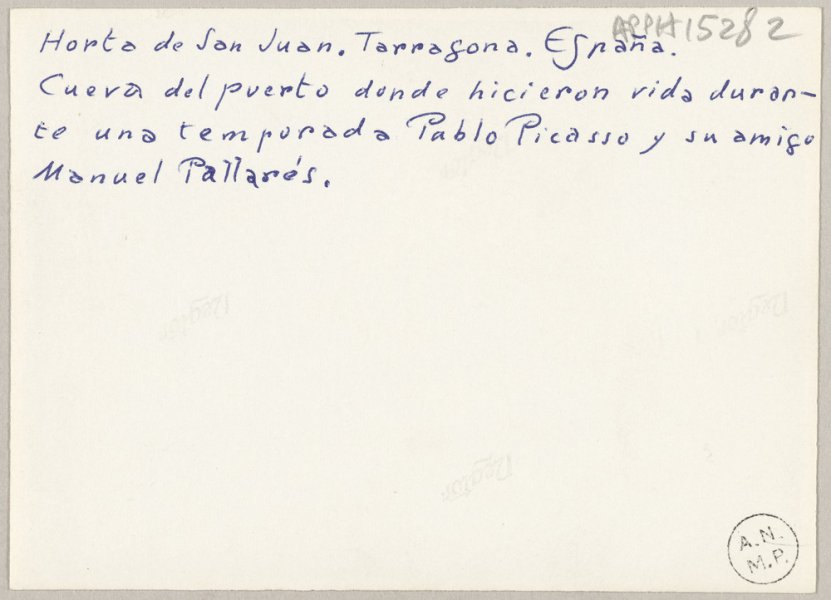 APPH15282
Horta de San Juan. Tarragona. España.
Cueva del puerto donde hicieron vida duran-
te una temporada Pablo Picasso y su amigo
Manuel Pallarés.
A.N.
M.P.